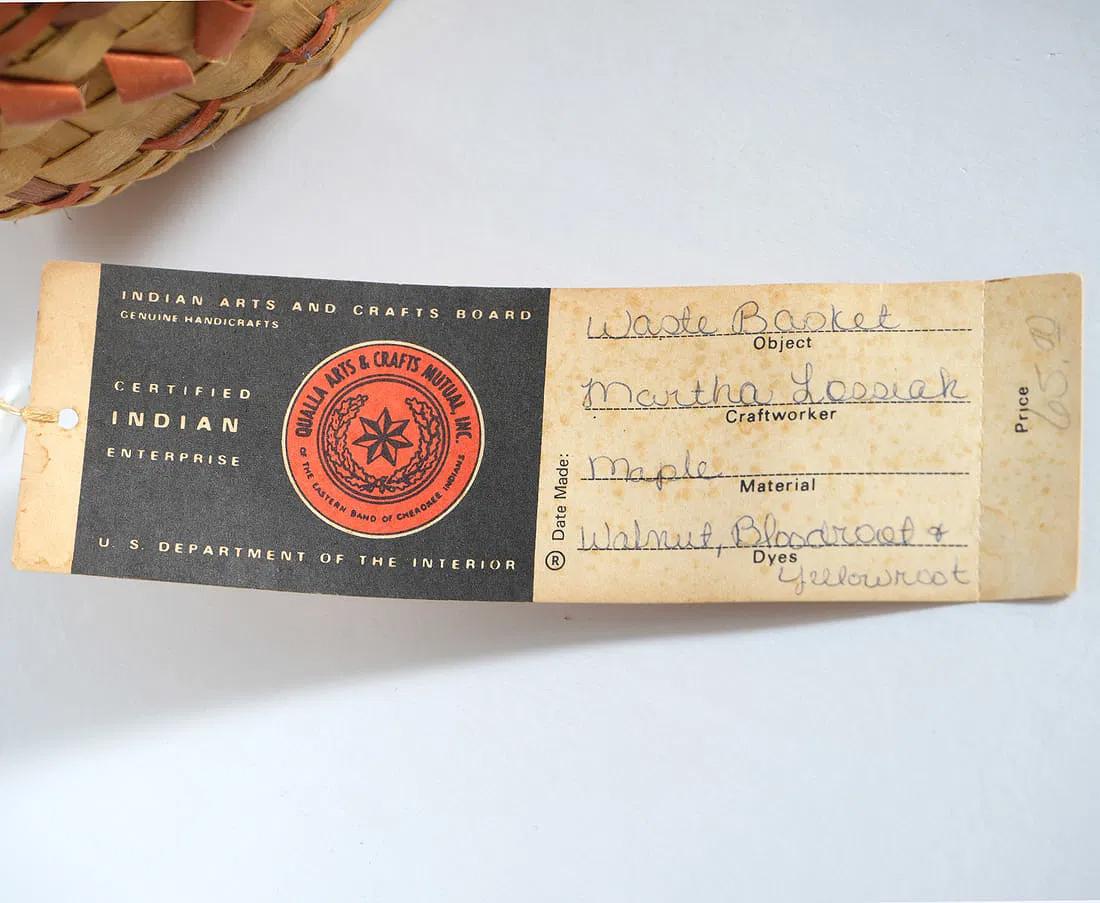 INDIAN ARTS AND CRAFTS BOARD
GENUINE HANDICRAFTS
CERTIFIED
INDIAN
ENTERPRISE
QUALLA ARTS & CRAFTS MUTUAL, INC.
OF THE EASTERN BAND OF CHEROKEE INDIANS
U. S. DEPARTMENT OF THE INTERIOR
Waste Basket
Object
Martha Lossiah
Craftworker
Maple
Material
Walnut, Bloodroot &
Dyes
Yellowroot
® Date Made:
Price
65.00